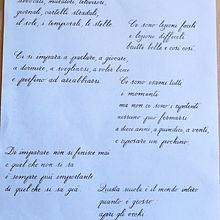 avvocati, muratori, televisori,
giornali, cartelli stradali,
il sole, i temporali, le stelle.
Ci sono lezioni facili
e lezioni difficili
brutte, belle e così così.
Ci si impara a parlare, a giocare,
a dormire, a svegliarsi, a voler bene
e perfino ad arrabbiarsi.
Ci sono esami tutti
i momenti
ma non ci sono i ripetenti
nessuno può fermarsi
a dieci anni a quindici, a venti,
e riposare un pochino.
Di imparare non si finisce mai
e quel che non si sa
è sempre più importante
di quel che si sa già.
Questa scuola è il mondo intero
quanto è grosso:
apri gli occhi